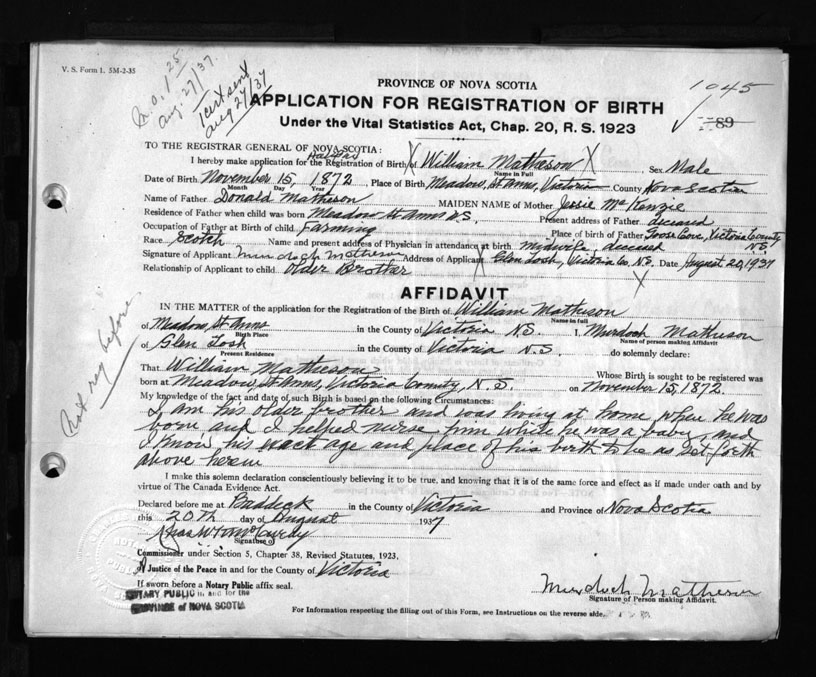 V. S. Form 1. 5M-2-35
M.O. 1.25
Aug. 27/37.
1 cert sent
Aug 27/37
1045
89
PROVINCE OF NOVA SCOTIA
APPLICATION FOR REGISTRATION OF BIRTH
Under the Vital Statistics Act, Chap. 20, R. S. 1923
TO THE REGISTRAR GENERAL OF NOVA SCOTIA:
Halifax
I hereby make application for the Registration of Birth of William Matheson Sex Male
Name in Full
Date of Birth November 15, 1872, Place of Birth Meadow, St Anns, Victoria County Nova Scotia
Month Day Year
Name of Father Donald Matheson MAIDEN NAME of Mother Jessie McKenzie
Residence of Father when child was born Meadow St Anns N.S. Present address of Father deceased
Occupation of Father at Birth of child Farming Place of birth of Father Goose Cove, Victoria County
N.S.
Race Scotch Name and present address of Physician in attendance at birth midwife, deceased
Signature of Applicant Murdoch Matheson Address of Applicant Glen Tosh, Victoria Co. N.S. Date August 20, 1937
Relationship of Applicant to child Older Brother
AFFIDAVIT
IN THE MATTER of the application for the Registration of the Birth of William Matheson
Name in full
of Meadow, St Anns in the County of Victoria N.S. I, Murdoch Matheson
Birth Place Name of person making Affidavit
of Glen Tosh in the County of Victoria N.S. do solemnly declare:
Present Residence
That William Matheson Whose Birth is sought to be registered was
born at Meadow, St Anns, Victoria County, N.S. on November 15, 1872.
My knowledge of the fact and date of such Birth is based on the following Circumstances:
I am his older brother and was living at home when he was
born and I helped nurse him while he was a baby, and
I know his exact age and place of his birth to be as set forth
above herein
Not reg before
I make this solemn declaration conscientiously believing it to be true, and knowing that it is of the same force and effect as if made under oath and by
virtue of The Canada Evidence Act.
Declared before me at Baddeck in the County of Victoria and Province of Nova Scotia
this 20th day of August 1937
Signature of
Commissioner under Section 5, Chapter 38, Revised Statutes, 1923.
A Justice of the Peace in and for the County of Victoria
If sworn before a Notary Public affix seal.
NOTARY PUBLIC in and for the
PROVINCE of NOVA SCOTIA
Murdoch Matheson
Signature of Person making Affidavit.
For Information respecting the filling out of this Form, see Instructions on the reverse side.